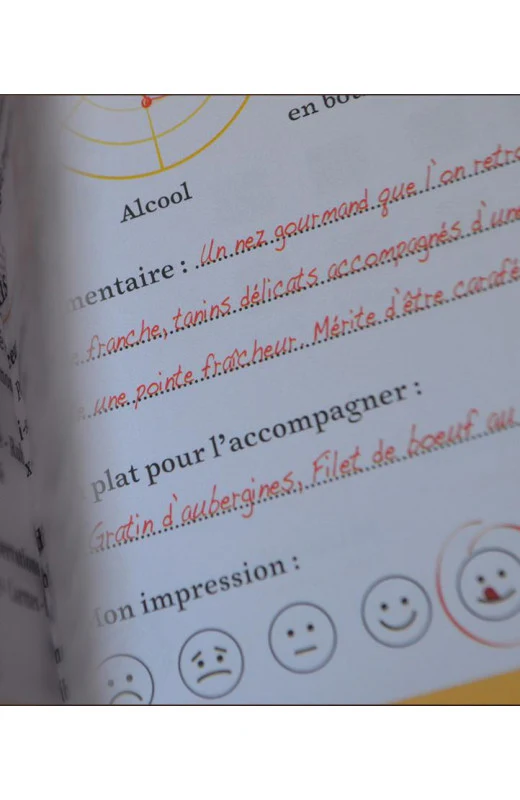 en bou
Alcool
mentaire : Un nez gourmand que l'on retro
franche, tanins délicats accompagnés d'une
une pointe fraîcheur. Mérite d'être carafé
plat pour l'accompagner :
Gratin d'aubergines, Filet de boeuf au
Mon impression :